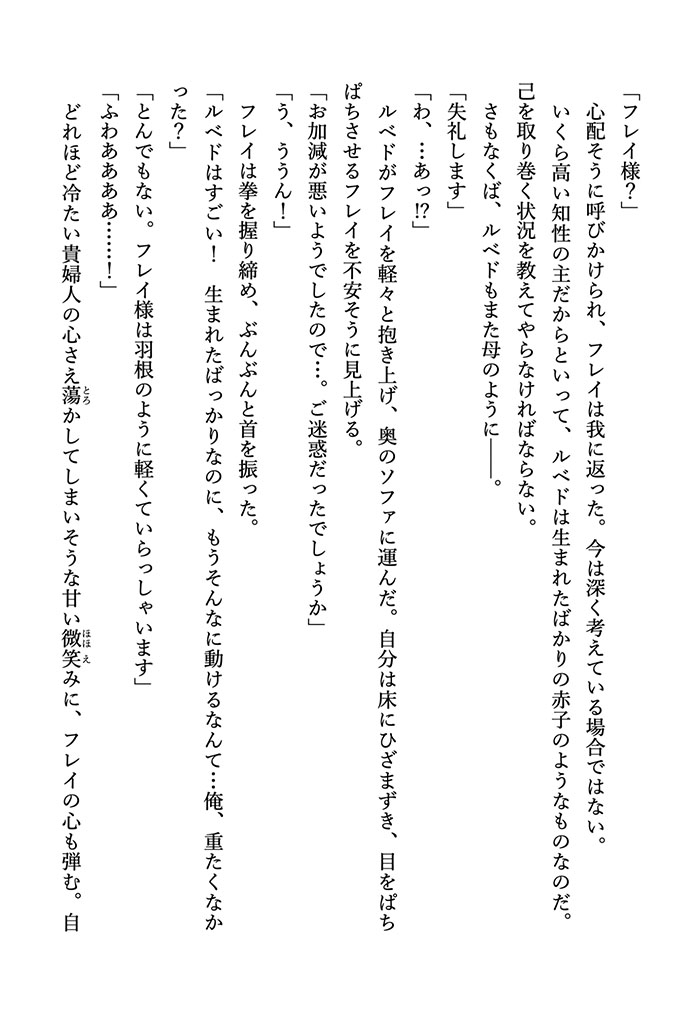 「フレイ様？」
心配そうに呼びかけられ、フレイは我に返った。今は深く考えている場合ではない。
いくら高い知性の主だからといって、ルベドは生まれたばかりの赤子のようなものなのだ。
己を取り巻く状況を教えてやらなければならない。
さもなくば、ルベドもまた母のように――。
「失礼します」
「わ、…あっ!?」
ルベドがフレイを軽々と抱き上げ、奥のソファに運んだ。自分は床にひざまずき、目をぱち
ぱちさせるフレイを不安そうに見上げる。
「お加減が悪いようでしたので…。ご迷惑だったでしょうか」
「う、ううん！」
フレイは拳を握り締め、ぶんぶんと首を振った。
「ルベドはすごい！　生まれたばっかりなのに、もうそんなに動けるなんて…俺、重たくなか
った？」
「とんでもない。フレイ様は羽根のように軽くていらっしゃいます」
「ふわああああ……！」
どれほど冷たい貴婦人の心さえ蕩とろかしてしまいそうな甘い微笑ほほえみに、フレイの心も弾む。自